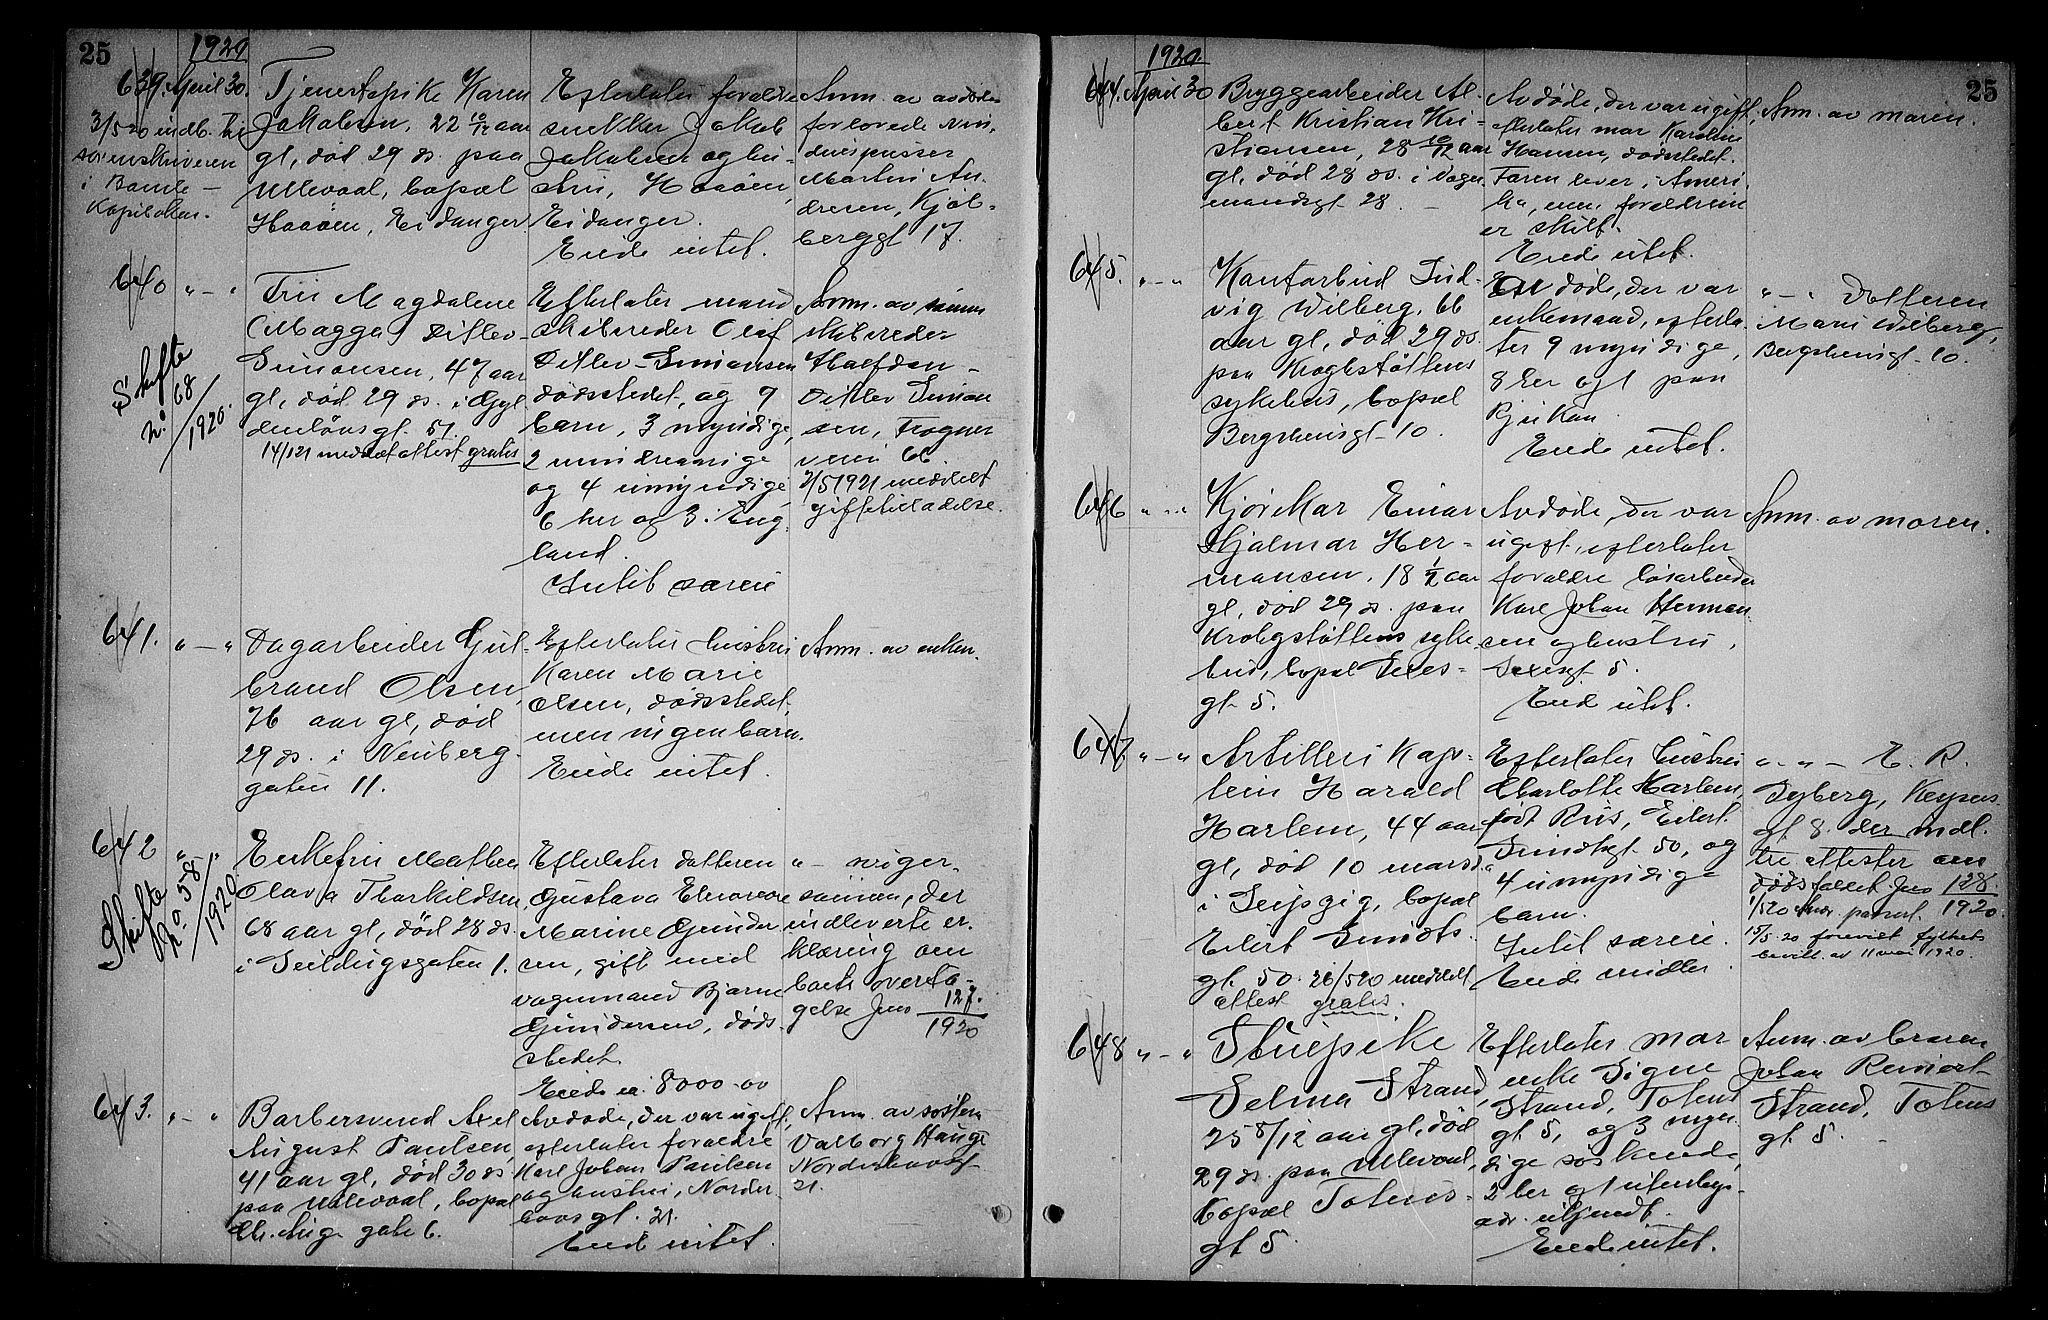 25
1920
639. April 30.
3/5 20 indb. til
sorenskriveren
i Bamle -
Tjenestepike Karen
Jakobsen, 22 10/12 aar
gl, død 29 ds. paa
Ullevaal, bopæl
Haaøen, Eidanger
Efterlater forældre
snekker Jakob
Jakobsen og hu-
stru, Haaøen,
Eidanger.
Eiede intet.
Anm. av avdødes
forlovede
Martin An-
dresen, Kjøl-
berggt 17.
640 " - "
Skifte
No 68
/1920.
Fru Magdalene
(Magga) Ditlev-
Simonsen, 47 aar
gl, død 29 ds. i Gyl
denløvsgt. 51.
14/1 21 meddelt attest gratis
Efterlater mand
skibsreder Olaf
Ditlev-Simonsen
dødsstedet, og 9
barn, 3 myndige,
2 mindreaarige
og 4 umyndige,
6 her og 3 i Eng-
land.
Intet særeie
Anm. av
skibsreder
Halfdan
Ditlev Simon
sen, Frogner
veien 66
2/5 1921 meddelt
giftetilladelse.
641. " - "
Dagarbeider Gul-
brand Olsen,
76 aar gl, død
29 ds. i Neuberg-
gaten 11.
Efterlater hustru
Karen Marie
Olsen, dødsstedet,
men ingen barn.
Eiede intet.
Anm. av enken.
642 " "
Skifte
No 58
/1920
Enkefru Mathea
Olava Thorkildsen,
68 aar gl, død 28 ds.
i Seildugsgaten 1.
Efterlater datteren
Gustava Eleonore
Marine Gunder
sen, gift med
vognmand Bjarne
Gundersen, døds-
stedet.
Eiede ca. 8000.00
" - sviger-
sønnen, der
indleverte er-
klæring om
boets overta-
gelse Jnr 127.
1920
643. " - "
Barbersvend Axel
August Paulsen,
41 aar gl, død 30 ds
paa Ullevaal, bopæl
Chr. Aug. gate 6.
Avdøde, der var ugift,
efterlater forældre
Karl Johan Paulsen
og hustru, Norder
hovsgt. 21.
Eiede intet.
Anm. av søsteren
Valborg Hauge
Norderhovsgt
21.
25
1920.
644. April 30
Bryggearbeider Al-
bert Kristian Kri-
stiansen, 28 10/12 aar
gl, død 28 ds. i Vogn
mandsgt 28.
Avdøde, der var ugift,
efterlater mor Karoline
Hansen, dødsstedet.
Faren lever i Ameri-
ka, men forældrene
er skilt.
Eiede intet.
Anm. av moren.
645. " - "
Kontorbud Lud-
vig Wilberg, 66
aar gl, død 29 ds.
paa Krogstøttens
sykehus, bopæl
Bergsliensgt. 10.
Avdøde, der var
enkemand, efterla-
ter 9 myndige,
8 her og 1 paa
Rjukan.
Eiede intet.
" - " Datteren
Marie Wilberg,
Bergsliensgt. 10.
646 " - "
Einar
Hjalmar Her-
mansen, 18 1/2 aar
gl, død 29 ds. paa
Krohgstøttens syke
hus, bopæl Sexes-
gt. 5.
Avdøde, der var
ugift, efterlater
forældre løsarbeider
Karl Johan Herman
sen og hustru,
Sexesgt. 5.
Eied intet.
Anm. av moren.
647. " - "
Artilleri Kap-
tein Harald
Harlem, 44 aar
gl, død 10 marsd.
i Leipzig, bopæl
Eilert Sundts
gt. 50. 26/5 20 meddelt
attest gratis.
Efterlater hustru
Charlotte Harlem,
født Riis, Eilert
Sundtsgt. 50, og
4 umyndige
barn.
Intet særeie.
Eiede midler.
" - " - E. R.
Dyberg, Keysers
gt. 8. der indl.
tre attester om
dødsfallet Jnr 128.
1920.
15/5 20 forevist fylkets
bevill. av 11 mai 1920.
648 " - "
Stuepike
Selma Strand,
25 8/12 aar gl, død
29 ds. paa Ullevaal,
bopæl Totens-
gt 5.
Efterlater mor
enke Signe
Strand, Totens
gt 5, og 3 myn-
dige søskende,
2 her og 1 utenbys-
adr. ukjendt.
Eiede intet.
Anm. av broren
Johan Reinert
Strand, Totens
gt. 5.